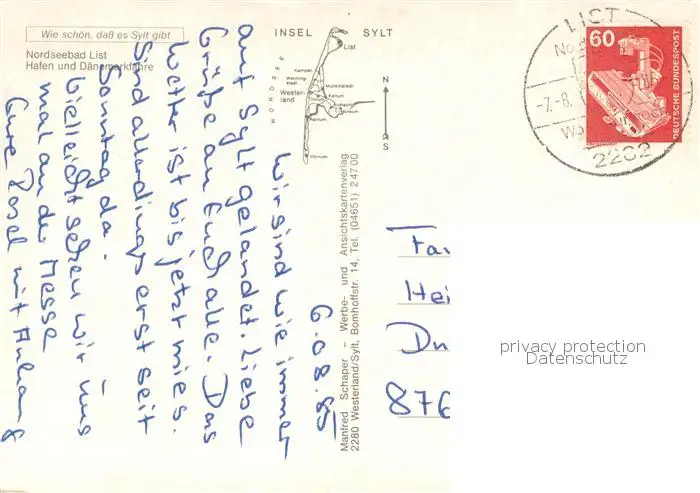 Wie schön, daß es Sylt gibt
Nordseebad List
Hafen und Dänemarkfähre
INSEL SYLT
List
Kampen
Westerland
Munkmarsch
Keitum
Hörnum
NORDSEE
N
S
Manfred Schaper – Werbe- und Ansichtskartenverlag
2280 Westerland/Sylt, Bomhoffstr. 14, Tel. (04651) 2 47 00
LIST
-7.-8.
2282
60
DEUTSCHE BUNDESPOST
6.08.85
Wir sind wie immer
auf Sylt gelandet. Liebe
Grüße an Euch alle. Das
Wetter ist bis jetzt mies.
Sind allerdings erst seit
Sonntag da.
Vielleicht sehen wir uns
mal an der Messe
Eure Rosel mit Anhang
Fa
Hei
Du
876
privacy protection
Datenschutz